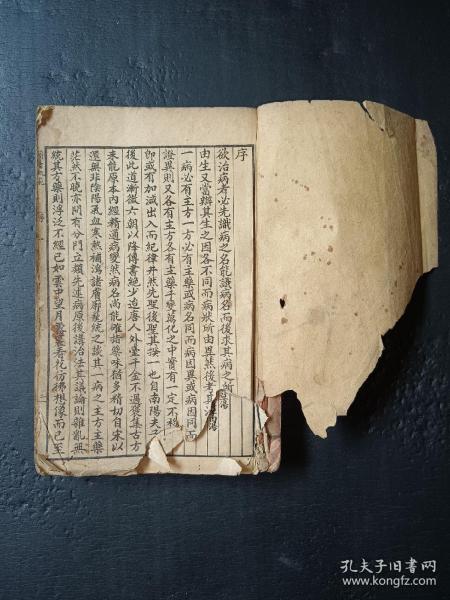 序
欲治病者必先識病之名能識病名而後求其病之所
由生又當辨其生之因各不同而病狀所由異然後考其治
一病必有主方一方必有主藥或病名同而病因異或病因同而
證異則又各有主方各有主藥千變萬化之中實有一定不移
即或有加減出入而紀律井然先聖後聖其揆一也自南陽夫子
後此道漸微六朝以降傳書絕少迨唐人外臺千金不過裒集古方
未能原本內經精通病變然病名尚能確指藥味猶多精切自宋以
還無非陰陽氣血寒熱補瀉諸膚廓籠統之談其一病之主方主藥
茫然不曉亦間有分門立類先述病原後講治法其議論則雜亂無
統其方藥則浮泛不經已如雲中望月霧裏看花彷彿想像而已至
孔夫子旧书网
www.kongfz.com